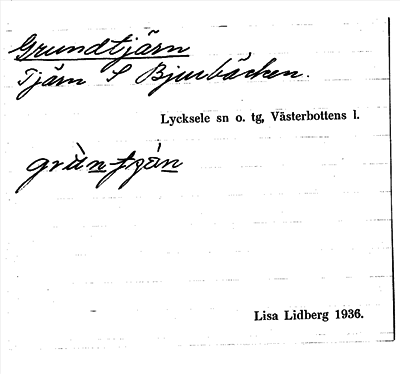 Grundtjärn
Tjärn S Bjurbäcken.
Lycksele sn o. tg, Västerbottens l.
Lisa Lidberg 1936.